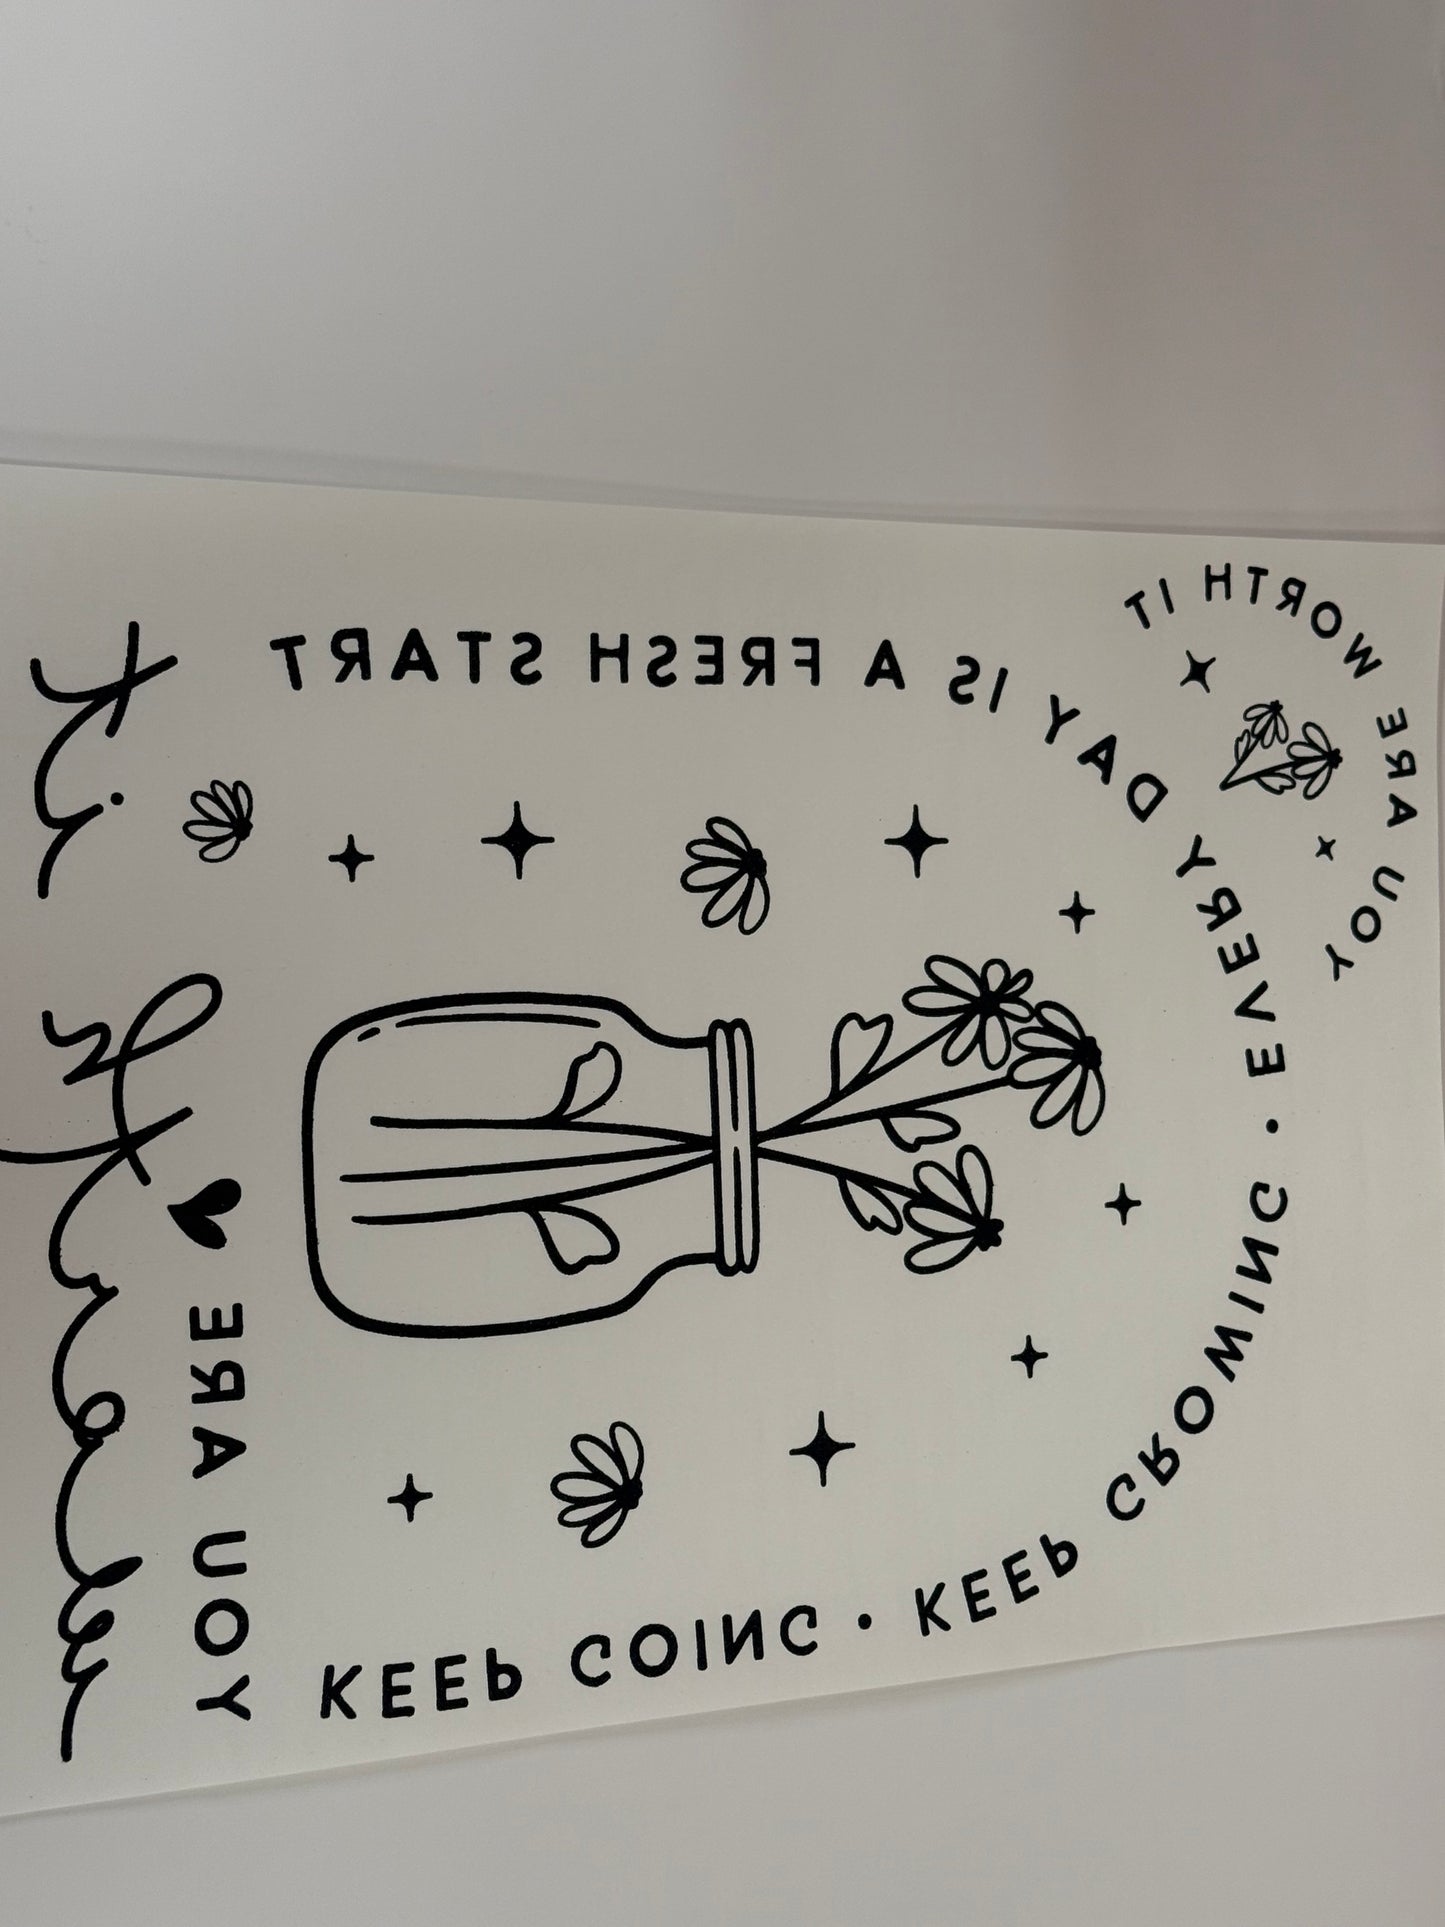 KEEP GOING • KEEP GROWING • EVERY DAY IS A FRESH START
YOU ARE ♥
worth it
YOU ARE WORTH IT